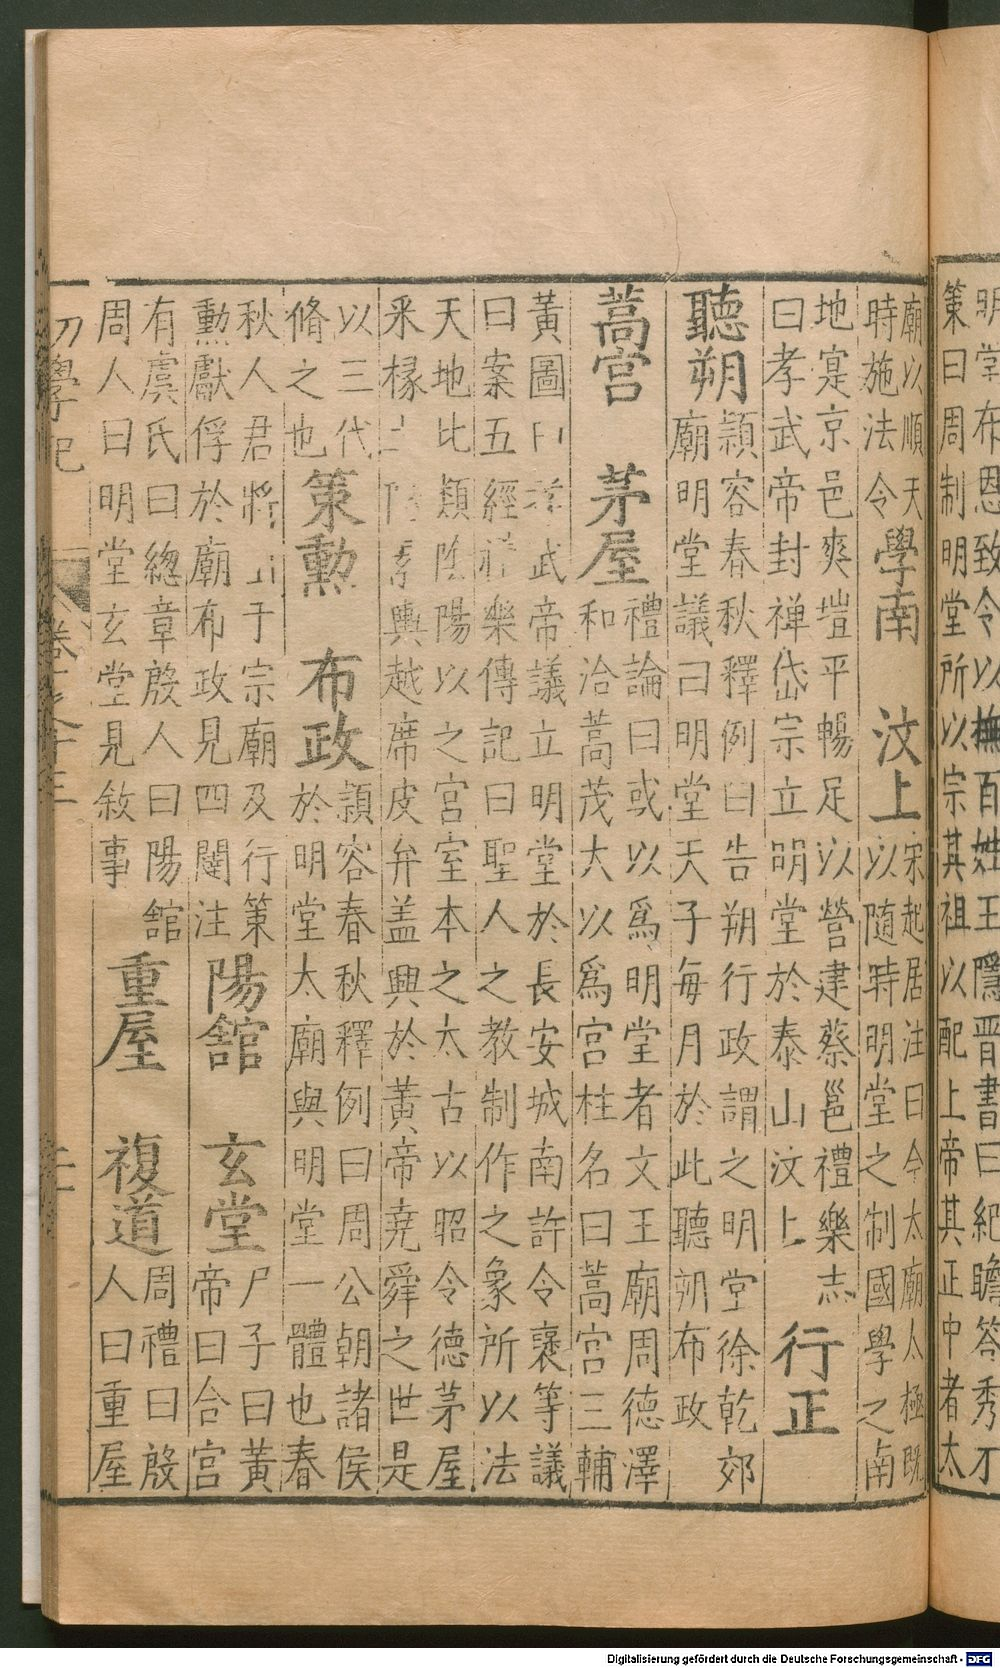 明堂布恩致令以撫百姓王隱晉書曰紀瞻答秀才
策曰周制明堂所以宗其祖以配上帝其正中者太
廟以順天
時施法令
學南　汶上
宋起居注曰今太廟太極既
以隨時明堂之制國學之南
地寔京邑爽塏平暢足以營建蔡邕禮樂志
曰孝武帝封禅岱宗立明堂於泰山汶上
行正
聽朔
頴容春秋釋例曰告朔行政謂之明堂徐乾郊
廟明堂議曰明堂天子每月於此聽朔布政
蒿宫　茅屋
禮論曰或以爲明堂者文王廟周德澤
和洽蒿茂大以爲宫柱名曰蒿宫三輔
黃圖曰孝武帝議立明堂於長安城南許令襃等議
曰案五經禮樂傳記曰聖人之教制作之象所以法
天地比類陰陽以之宫室本之太古以昭令德茅屋
釆椽輿越席皮弁盖興於黃帝堯舜之世是
以三代
脩之也
策勲　布政
頴容春秋釋例曰周公朝諸侯
於明堂太廟與明堂一體也春
秋人君將于宗廟及行策
勲獻俘於廟布政見四闥注
陽舘　玄堂
尸子曰黃
帝曰合宫
有虞氏曰總章殷人曰陽舘
周人曰明堂玄堂見敘事
重屋　複道
周禮曰殷
人曰重屋
初學記
卷之十三
Digitalisierung gefördert durch die Deutsche Forschungsgemeinschaft - DFG